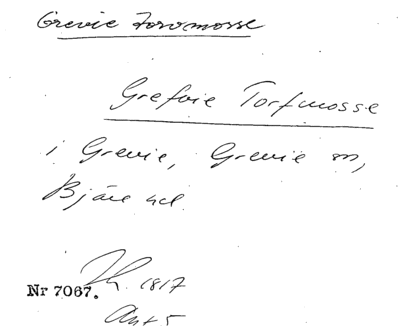 Grevie Torvmosse
Grefvie Torfmosse
i Grevie, Grevie sn,
Bjäre hd.
Nr 7067. 1817
Ant 5